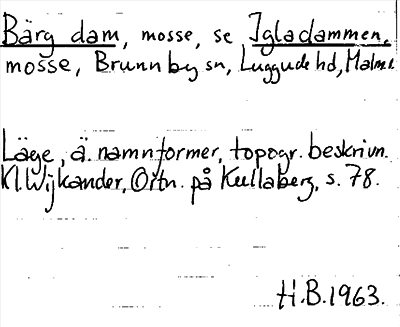 Bärg dam, mosse, se Igladammen,
mosse, Brunnby sn, Luggude hd, Malm.l
Läge, ä. namnformer, topogr. beskrivn.
Kl. Wijkander, Ortn. på Kullaberg, s. 78.
H.B. 1963.